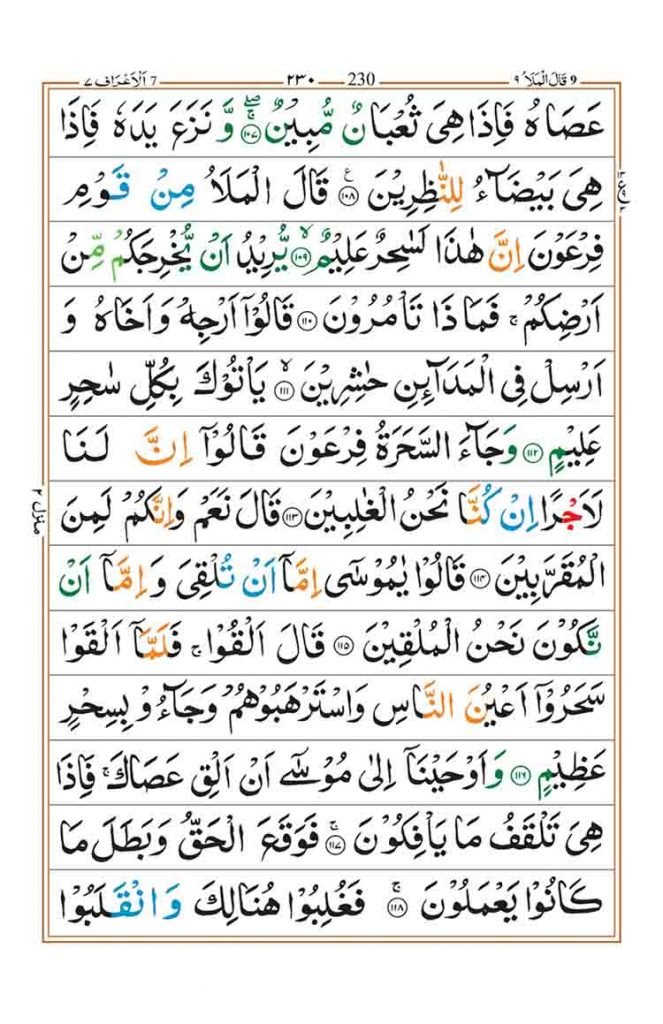 ٩ قَالَ الْمَلَاُ 9 230 ٢٣٠ 7 اَلْاَعْرَاف ٧
عَصَاهُ فَاِذَا هِیَ ثُعْبَانٌ مُّبِیْنٌ ۝١٠٧ۚۖ وَّ نَزَعَ یَدَهٗ فَاِذَا
هِیَ بَیْضَآءُ لِلنّٰظِرِیْنَ ۝١٠٨ۧ قَالَ الْمَلَاُ مِنْ قَوْمِ
فِرْعَوْنَ اِنَّ هٰذَا لَسٰحِرٌ عَلِیْمٌ ۝١٠٩ۙ یُّرِیْدُ اَنْ یُّخْرِجَكُمْ مِّنْ
اَرْضِكُمْ ۚ فَمَا ذَا تَاْمُرُوْنَ ۝١١٠ قَالُوْۤا اَرْجِهْ وَ اَخَاهُ وَ
اَرْسِلْ فِی الْمَدَآىِٕنِ حٰشِرِیْنَ ۝١١١ۙ یَاْتُوْكَ بِكُلِّ سٰحِرٍ
عَلِیْمٍ ۝١١٢ وَ جَآءَ السَّحَرَةُ فِرْعَوْنَ قَالُوْۤا اِنَّ لَنَا
لَاَجْرًا اِنْ كُنَّا نَحْنُ الْغٰلِبِیْنَ ۝١١٣ قَالَ نَعَمْ وَ اِنَّكُمْ لَمِنَ
الْمُقَرَّبِیْنَ ۝١١٤ قَالُوْا یٰمُوْسٰۤی اِمَّاۤ اَنْ تُلْقِیَ وَ اِمَّاۤ اَنْ
نَّكُوْنَ نَحْنُ الْمُلْقِیْنَ ۝١١٥ قَالَ اَلْقُوْا ۚ فَلَمَّاۤ اَلْقَوْا
سَحَرُوْۤا اَعْیُنَ النَّاسِ وَ اسْتَرْهَبُوْهُمْ وَ جَآءُوْ بِسِحْرٍ
عَظِیْمٍ ۝١١٦ وَ اَوْحَیْنَاۤ اِلٰی مُوْسٰۤی اَنْ اَلْقِ عَصَاكَ ۚ فَاِذَا
هِیَ تَلْقَفُ مَا یَاْفِكُوْنَ ۝١١٧ۚ فَوَقَعَ الْحَقُّ وَ بَطَلَ مَا
كَانُوْا یَعْمَلُوْنَ ۝١١٨ۚ فَغُلِبُوْا هُنَالِكَ وَ انْقَلَبُوْا
منزل ٢